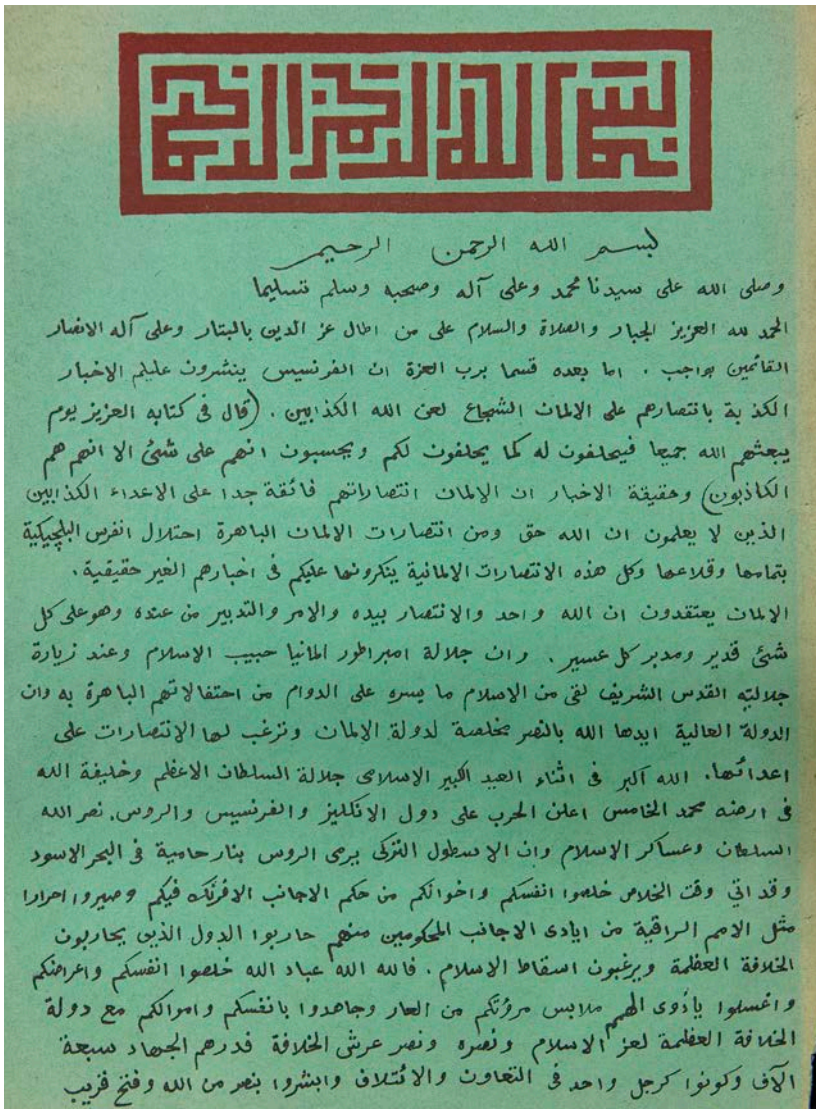 بسم الله الرحمن الرحيم
بسم الله الرحمن الرحيم
وصلى الله على سيدنا محمد وعلى آله وصحبه وسلم تسليما
الحمد لله العزيز الجبار والصلاة والسلام على من اطال عز الدين بالبتار وعلى آله الانصار
القائمين بواجب . اما بعده قسما برب العزة ان الفرنسيس ينشرون عليكم الاخبار
الكذبة بانتصارهم على الالمان الشجاع لعن الله الكذابين . (قال فى كتابه العزيز يوم
يبعثهم الله جميعا فيحلفون له كما يحلفون لكم ويحسبون انهم على شئ الا انهم هم
الكاذبون) وحقيقة الاخبار ان الالمان انتصاراتهم فائقة جدا على الاعداء الكذابين
الذين لا يعلمون ان الله حق ومن انتصارات الالمان الباهرة احتلال انفرس البلجيكية
بتمامها وقلاعها وكل هذه الانتصارات الالمانية ينكرونها عليكم فى اخبارهم الغير حقيقية .
الالمان يعتقدون ان الله واحد والانتصار بيده والامر والتدبير من عنده وهو على كل
شئ قدير ومدبر كل عسير . وان جلالة امبراطور المانيا حبيب الاسلام وعند زيارة
جلالته القدس الشريف لقى من الاسلام ما يسره على الدوام من احتفالاتهم الباهرة به وان
الدولة العالية ايدها الله بالنصر مخلصة لدولة الالمان وترغب لها الانتصارات على
اعدائها. الله اكبر فى اثناء العيد الكبير الاسلامى جلالة السلطان الاعظم وخليفة الله
فى ارضه محمد الخامس اعلن الحرب على دول الانكليز والفرنسيس والروس. نصر الله
السلطان وعساكر الاسلام وان الاسطول التركى يرمى الروس بنار حامية فى البحر الاسود
وقد اتي وقت الخلاص خلصوا انفسكم واخوانكم من حكم الاجانب الافرنك فيكم وصيروا احرارا
مثل الامم الراقية من ايادى الاجانب المحكومين منهم حاربوا الدول الذين يحاربون
الخلافة العظمة ويرغبون اسقاط الاسلام . فالله الله عباد الله خلصوا انفسكم واعراضكم
واغسلوا ياذوى الهمم ملابس مروتكم من العار وجاهدوا بانفسكم واموالكم مع دولة
الخلافة العظمة لعز الاسلام ونصره ونصر عرش الخلافة فدرهم الجهاد سبعة
الآف وكونوا كرجل واحد فى التعاون والائتلاف وابشروا بنصر من الله وفتح قريب